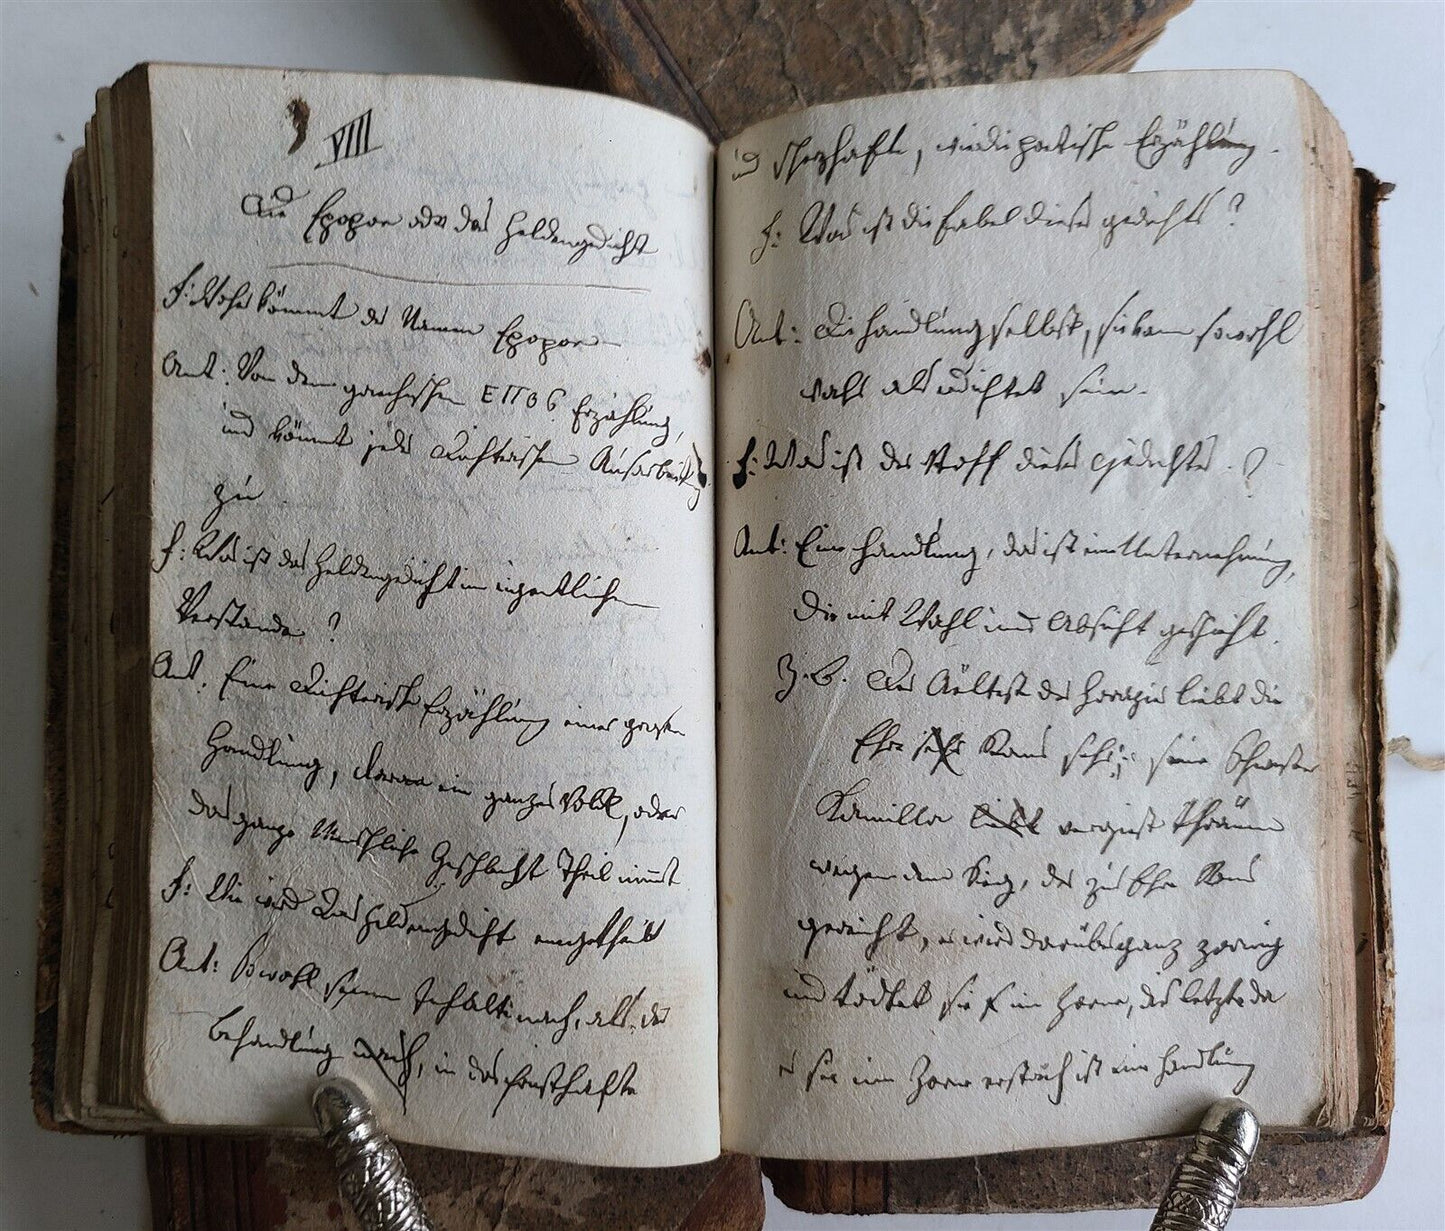 VIII
Die Epopoe oder das Heldengedicht
F: Woher kömmt der Namen Epopoe
Ant: Von dem griechischen ΕΠΟΣ Erzählung,
und kömmt jeder Dichterischen Ausarbeitung
zu.
F: Was ist das Heldengedicht im eigentlichen
Verstande?
Ant: Eine Dichterische Erzählung einer großen
Handlung, daran ein ganzes Volk, oder
das ganze Menschliche Geschlecht Theil nimmt
F: Wie wird das Heldengedicht eingetheilt
Ant: Sowohl seinem Inhalte nach, als der
Behandlung nach, in das ernsthafte
und scherzhafte, poetische Erzählung.
F: Was ist die Fabel dieses gedichts?
Ant: Die Handlung selbst, sie kann sowohl
wahr als erdichtet sein.
F: Was ist der Stoff dieses Gedichts?
Ant: Eine Handlung, das ist ein Unternehmung,
die mit Wahl und Absicht geschieht.
Z.B. Der Aelteste der Horazier liebt die
Ehre Roms sehr; seine Schwester
Kamilla vergiest Thränen
wegen dem Sieg, der zur Ehre Roms
gereicht, er wird darüber ganz zornig
und tödtet sie im Zorne, das letzte da
er sie im Zorne erstach ist eine Handlung